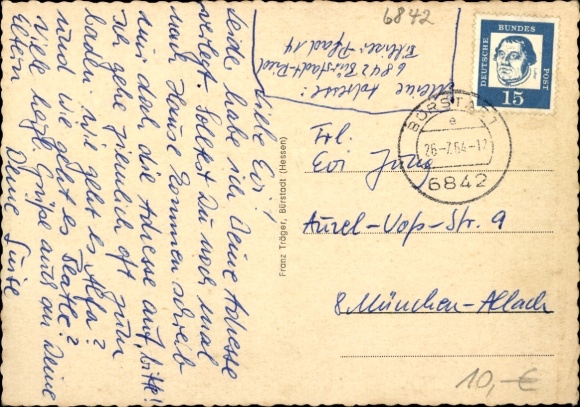 6842
Meine Adresse:
6842 Bürstadt-Ried
Pfad 14
Liebe Evi!
Leider habe ich Deine Adresse
verlegt. Solltest Du noch mal
nach Hause kommen schreib
mir doch die Adresse auf, bitte!
Ich gehe ziemlich oft zum
baden. Wie geht es
und wie geht es Beatle?
Viele herzl. Grüße auch an Deine
Eltern
Deine Luise
Franz Träger, Bürstadt (Hessen)
DEUTSCHE BUNDESPOST
15
BÜRSTADT
e
26-7.64-12
6842
Frl.
Evi Jung
Aurel-Voß-Str. 9
8 München-Allach
10,-€